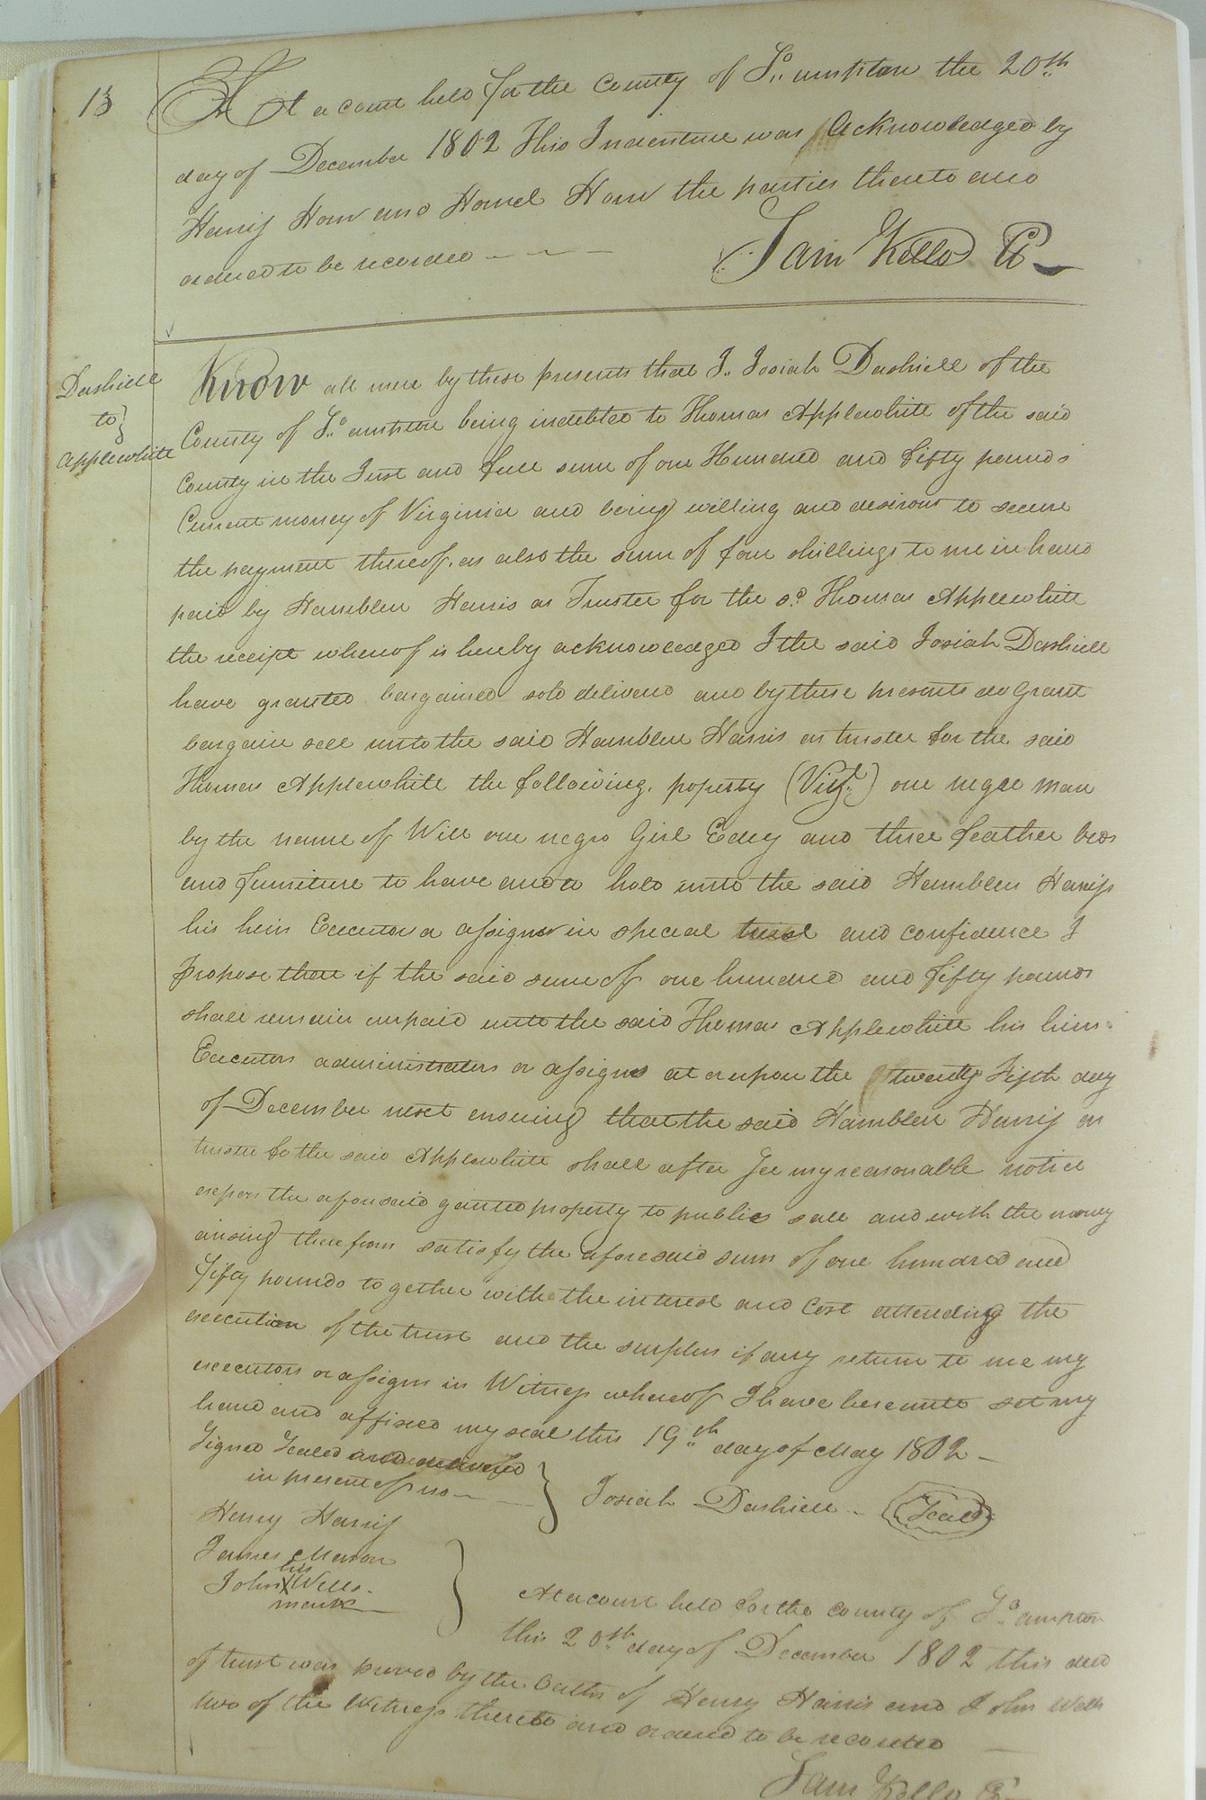 13
At a Court held for the County of So.. ampton the 20th
day of December 1802 This Indenture was Acknowledged by
Harris and the parties thereto and
ordered to be recorded
Sam Kello Cl
Dashiell
to
Applewhite
Know all men by these presents that I.. Josiah Dashiell of the
County of So.. ampton being indebted to Thomas Applewhite of the said
County in the Just and full sum of one Hundred and fifty pounds
Current money of Virginia and being willing and desirous to secure
the payment thereof, as also the sum of four shillings to me in hand
paid by Hamblen Harris as Trustee for the sd. Thomas Applewhite
the receipt whereof is hereby acknowledged I the said Josiah Dashiell
have granted bargained sold delivered and by these presents do Grant
bargain sell unto the said Hamblen Harris as trustee for the said
Thomas Applewhite the following. property (Vizt.) one negro man
by the name of Will one negro Girl Edey and three feather beds
and furniture to have and to hold unto the said Hamblen Harris
his heirs Executors assigns in special trust and confidence I
propose that if the said sum of one hundred and fifty pounds
shall remain unpaid unto the said Thomas Applewhite his heirs
Executors administrators or assigns at or upon the twenty Fifth day
of December next ensuing that the said Hamblen Harris as
trustee for the said Applewhite shall after reasonable notice
expose the aforesaid granted property to public sale and with the money
arising therefrom satisfy the aforesaid sum of one hundred and
Fifty pounds together with the interest and Cost attending the
execution of the trust and the surplus if any return to me my
executors or assigns in Witness whereof I have hereunto set my
hand and affixed my seal this 19..th day of May 1802
Signed Sealed and delivered
in present of us
Josiah Dashiell
Seal
Henry Harris
James Mason
his
John X Wells
mark
At a court held for the County of So.. ampton
this 20th day of December 1802 this deed
of trust was proved by the Oaths of Henry Harris and John Wells
two of the Witness thereto and ordered to be recorded
Sam Kello Cl